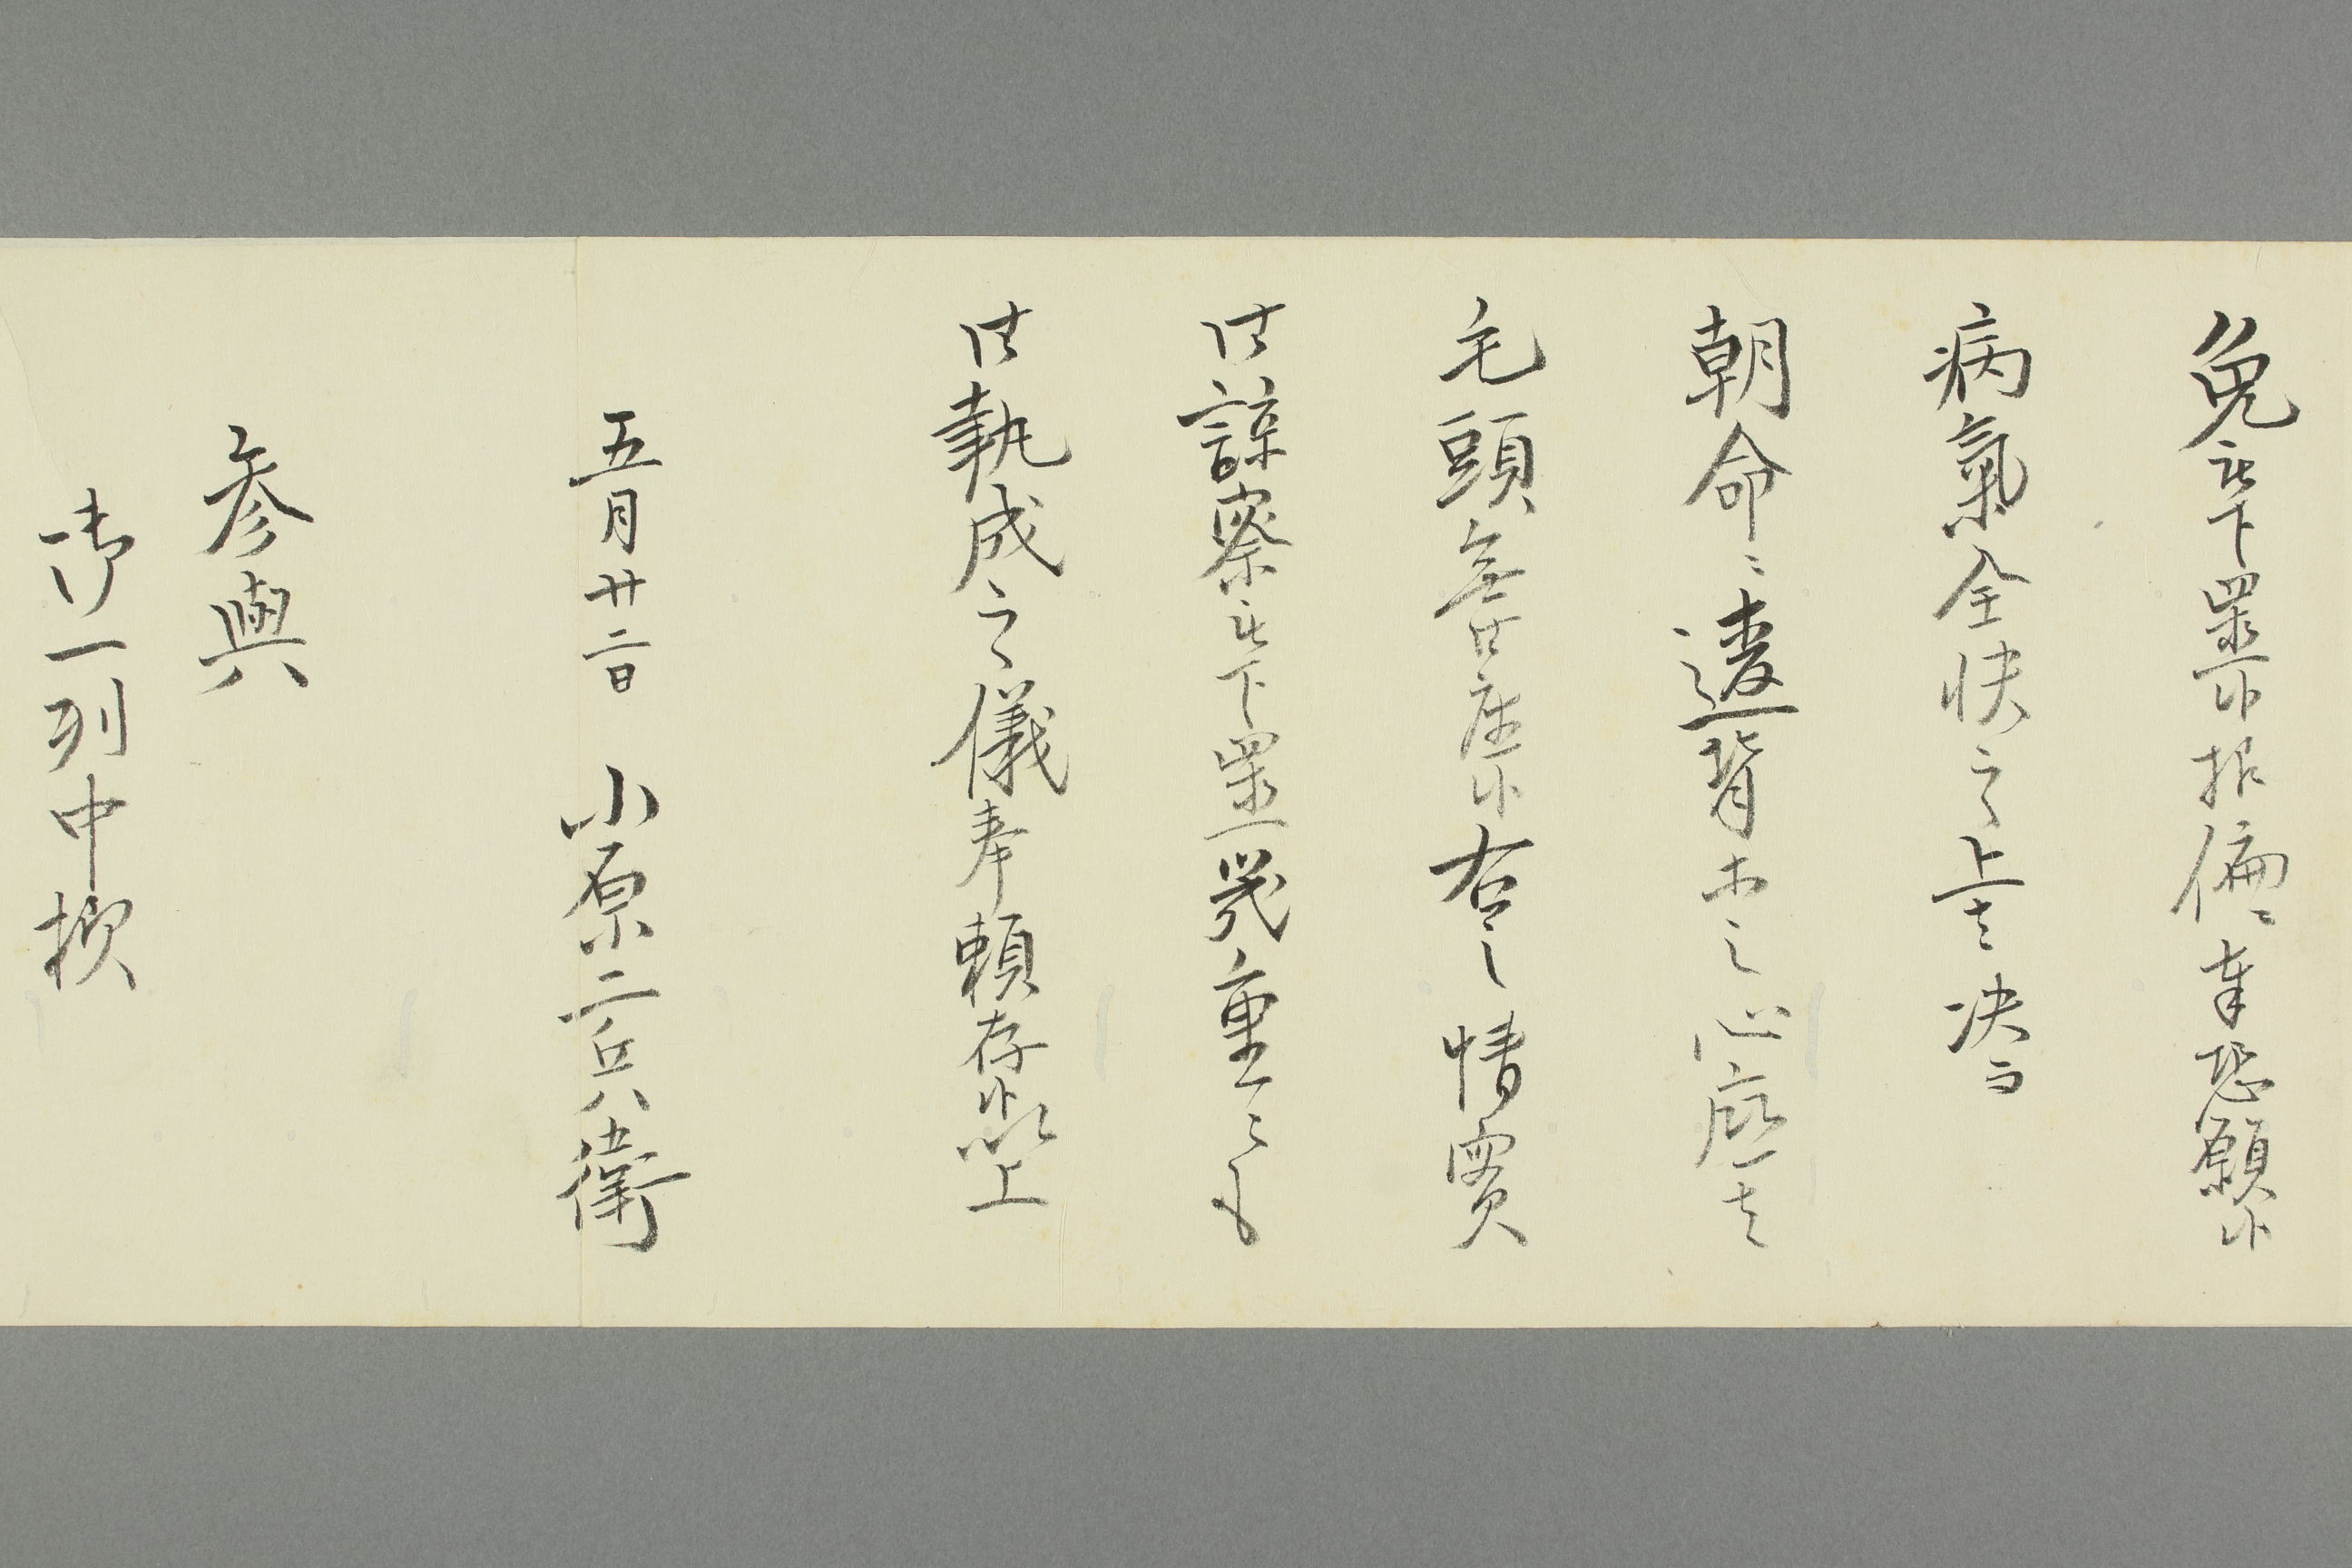 免被下置候様偏ニ奉懇願候
病氣全快之上者決而
朝命ニ違背等之心底者
毛頭無御座候右之情實
御諒察被下置幾重ニも
御執成之儀奉頼存候以上
五月廿二日 小原二兵衛
参與
御一列中様